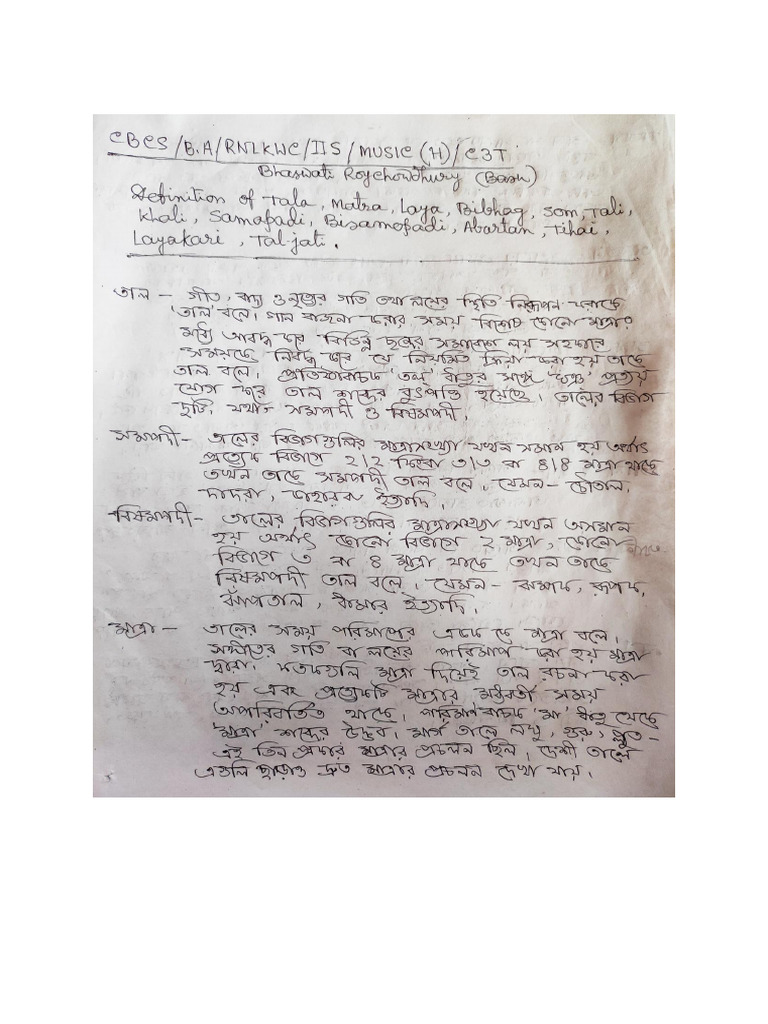 CBCS/B.A/RNLKWC/IIS/MUSIC (H)/C3T
Bhaswati Roychowdhury (Basu)
Definition of Tala, Matra, Laya, Bibhag, Som, Tali,
Khali, Samapadi, Bisamopadi, Abartan, Tihai,
Layakari, Tal-jati.
তাল - গীত, বাদ্য ও নৃত্যের গতি তথা লয়ের স্থিতি নিরূপন করাকে
'তাল' বলে। গান বাজনা করার সময় বিশেষ কোনো মাত্রার
মধ্যে আবদ্ধ করে বিভিন্ন ছন্দের সমাবেশে লয় সহকারে
সময়কে নিবদ্ধ করে যে নিয়মিত ক্রিয়া করা হয় তাকে
তাল বলে। প্রতিষ্ঠাবাচক 'তল্' ধাতুর সঙ্গে 'ঘঞ্' প্রত্যয়
যোগ করে তাল শব্দের বুৎপত্তি হয়েছে। তালের বিভাগ
দুটি। যথা- সমপদী ও বিষমপদী।
সমপদী - তালের বিভাগগুলির মাত্রাসংখ্যা যখন সমান হয় অর্থাৎ
প্রত্যেক বিভাগে ২/২ কিংবা ৩/৩ বা ৪/৪ মাত্রা থাকে
তখন তাকে সমপদী তাল বলে। যেমন- চৌতাল,
দাদরা, কাহারবা ইত্যাদি।
বিষমপদী - তালের বিভাগগুলির মাত্রাসংখ্যা যখন অসমান
হয় অর্থাৎ কোনো বিভাগে ২ মাত্রা, কোনো
বিভাগে ৩ বা ৪ মাত্রা থাকে তখন তাকে
বিষমপদী তাল বলে। যেমন- ঝম্পক, রূপক,
ঝাঁপতাল, ধামার ইত্যাদি।
মাত্রা - তালের সময় পরিমাপের একক কে মাত্রা বলে।
সঙ্গীতের গতি বা লয়ের পরিমাপ করা হয় মাত্রা
দ্বারা। কতকগুলি মাত্রা দিয়েই তাল রচনা করা
হয় এবং প্রত্যেকটি মাত্রার মধ্যবর্তী সময়
অপরিবর্তিত থাকে। পরিমাণ বাচক 'মা' ধাতু থেকে
'মাত্রা' শব্দের উদ্ভব। মার্গ তালে লঘু, গুরু, প্লুত-
এই তিন প্রকার মাত্রার প্রচলন ছিল। দেশী তালে
এগুলি ছাড়াও দ্রুত মাত্রার প্রচলন দেখা যায়।